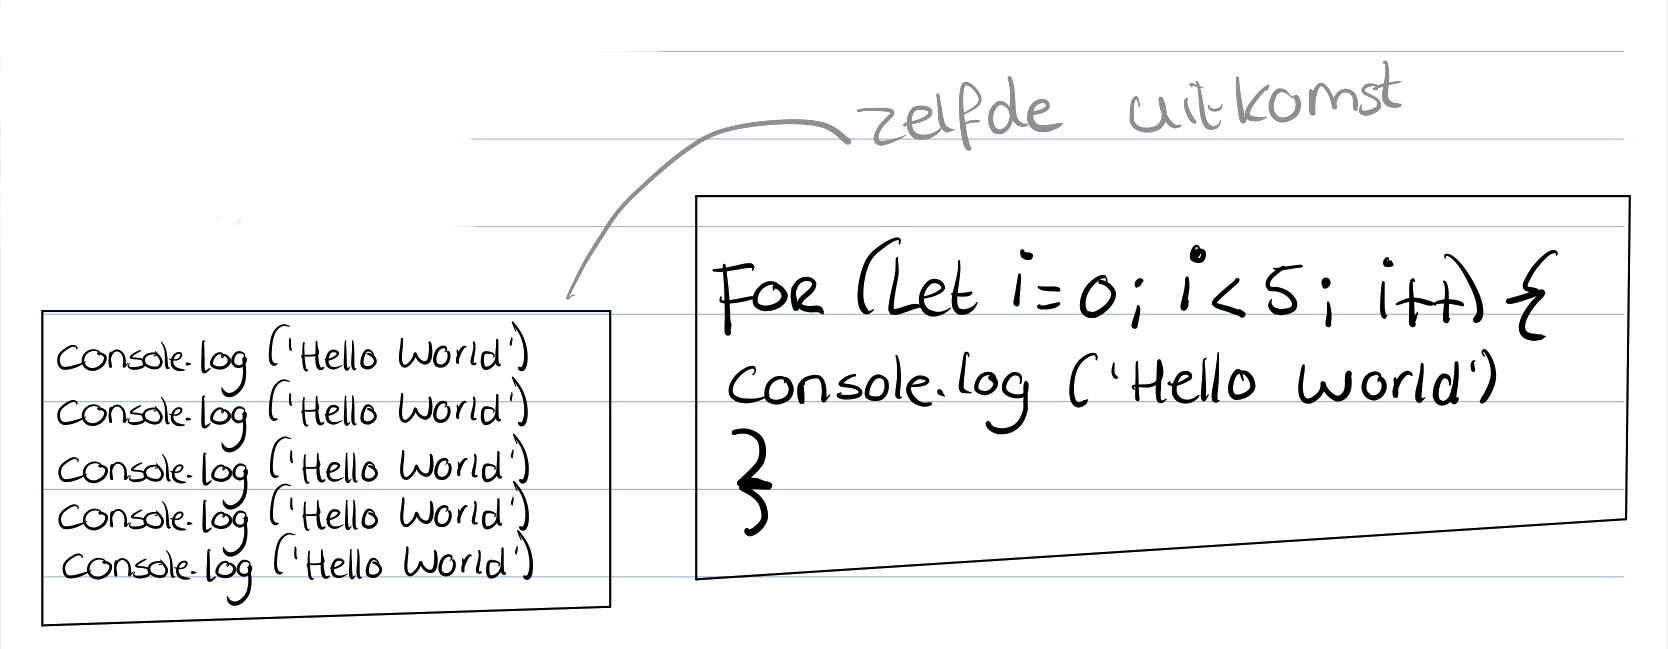 zelfde uitkomst
console.log ('Hello World')
console.log ('Hello World')
console.log ('Hello World')
console.log ('Hello World')
console.log ('Hello World')
FOR (Let i=0; i<5; i++) {
console.log ('Hello World')
}